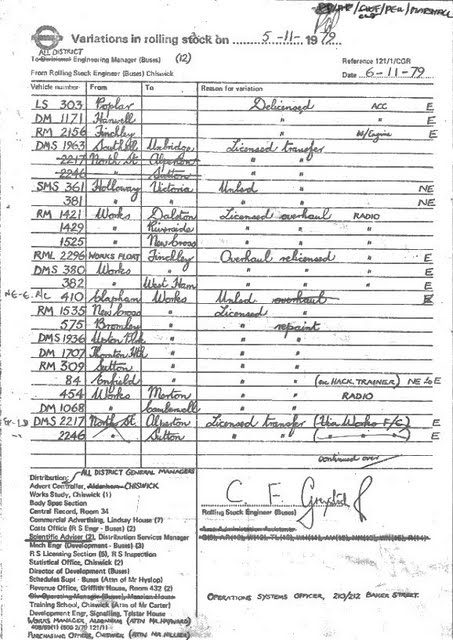 Variations in rolling stock on 5-11-1979
ALL DISTRICT
To Divisional Engineering Manager (Buses) (12)
Reference 121/1/CGR
From Rolling Stock Engineer (Buses) Chiswick
Date 6-11-79
Vehicle number From To Reason for variation
LS 303 Poplar Delicensed ACC E
DM 1171 Hanwell " " E
RM 2156 Finchley " W/Engine E
DMS 1963 Southall Uxbridge Licensed transfer E
2217 North St. Alperton " "
2246 " Sutton " "
SMS 361 Holloway Victoria Unlsd " NE
381 " " " " NE
RM 1421 Works Dalston Licensed overhaul RADIO
1429 " Riverside " " "
1525 " New Cross " " "
RML 2296 WORKS FLOAT Finchley Overhaul relicensed " E
DMS 380 Works " " " E
382 " West Ham " " " E
NE-E. R/C 410 Clapham Works Unlsd overhaul E
RM 1535 New Cross " Licensed "
575 Bromley " " repaint
DMS 1936 Upton Pk. " " "
DM 1707 Thornton Hth " " "
RM 309 Sutton " " "
84 Enfield " " " (ex HACK. TRAINER) NE to E
454 Works Merton " " RADIO
DM 1068 " Camberwell " "
DMS 2217 North St. Alperton Licensed transfer (Via Works F/C) E
2246 " Sutton " " ( " " " ) E
continued over
Distribution: ALL DISTRICT GENERAL MANAGERS
Advert Controller, Aldenham CHISWICK
Works Study, Chiswick (1)
Body Spos Section
Central Record, Room 34
Commercial Advertising, Lindsey House (7)
Costs Office (R S Engr - Buses) (2)
Scientific Adviser (2), Distribution Services Manager
Mech Engr (Development - Buses) (3)
R S Licensing Section (5), R S Inspection
Statistical Office, Chiswick (2)
Director of Development (Buses)
Schedules Supt - Buses (Attn of Mr Hyslop)
Revenue Office, Griffith House, Room 432 (2)
Training School, Chiswick (Attn of Mr Carter)
Development Engr, Signalling, Telstar House
WORKS MANAGER, ALDENHAM (ATTN MR HAYWARD)
PURCHASING OFFICE, CHISWICK (ATTN MR HILLIER)
Rolling Stock Engineer (Buses)
OPERATIONS SYSTEMS OFFICER, 210/212 BAKER STREET.